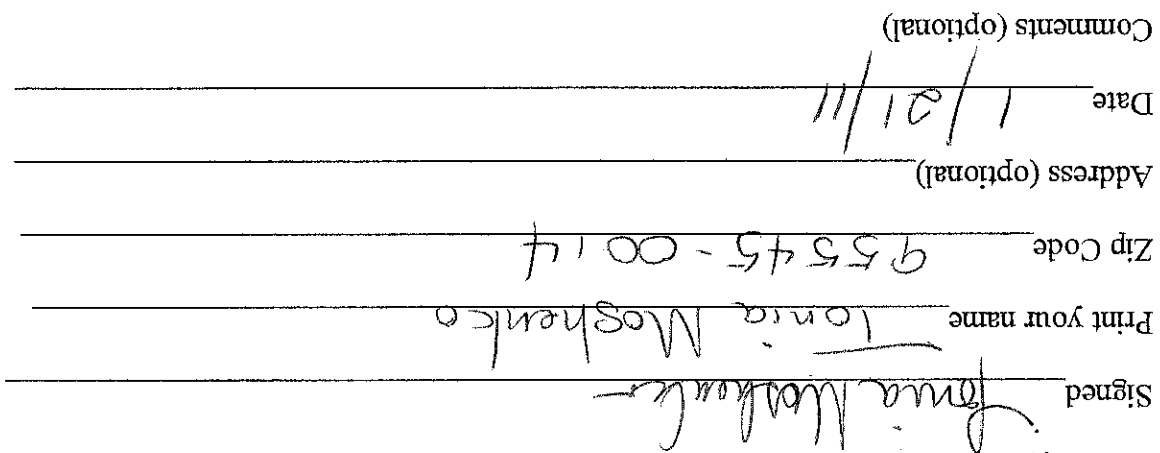 Signed Tonia Moshenko
Print your name Tonia Moshenko
Zip Code 95545-0014
Address (optional)
Date 1/21/11
Comments (optional)